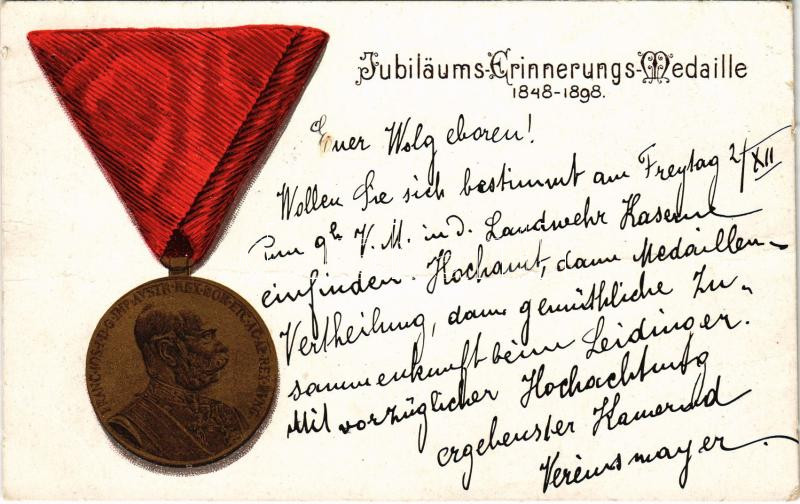 Jubiläums-Erinnerungs-Medaille
1848-1898.
Euer Wolgeboren!
Wollen Sie sich bestimmt am Freytag 2/XII
9h V. M. in d. Landwehr Kaserne
einfinden. Hochamt, dann Medaillen-
Vertheilung, dann gemüthliche Zu-
sammenkunft beim Leidinger.
Mit vorzüglicher Hochachtung
ergebenster Kamerad
Vereinsmayer.
FRANC·IOS·I·D·G·IMP·AVSTR·REX·BOH·ETC·AC·AP·REX·HVNG